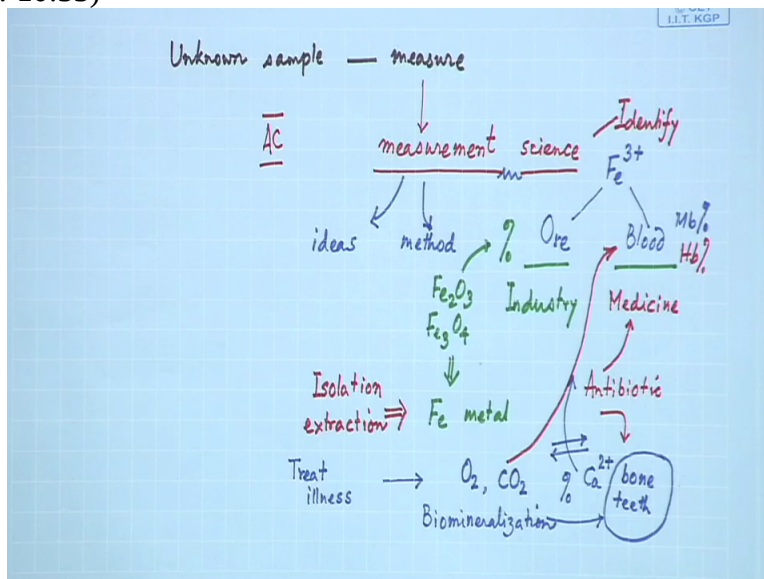 10.33)
I.I.T. KGP
Unknown sample — measure
AC
measurement science
Identify
Fe3+
ideas
method
%
Ore
Blood
Mb%
Hb%
Fe2O3
Fe3O4
Industry
Medicine
Isolation
extraction ⇒
Fe metal
Antibiotic
Treat
illness
→ O2, CO2
% Ca2+
bone
teeth
Biomineralization